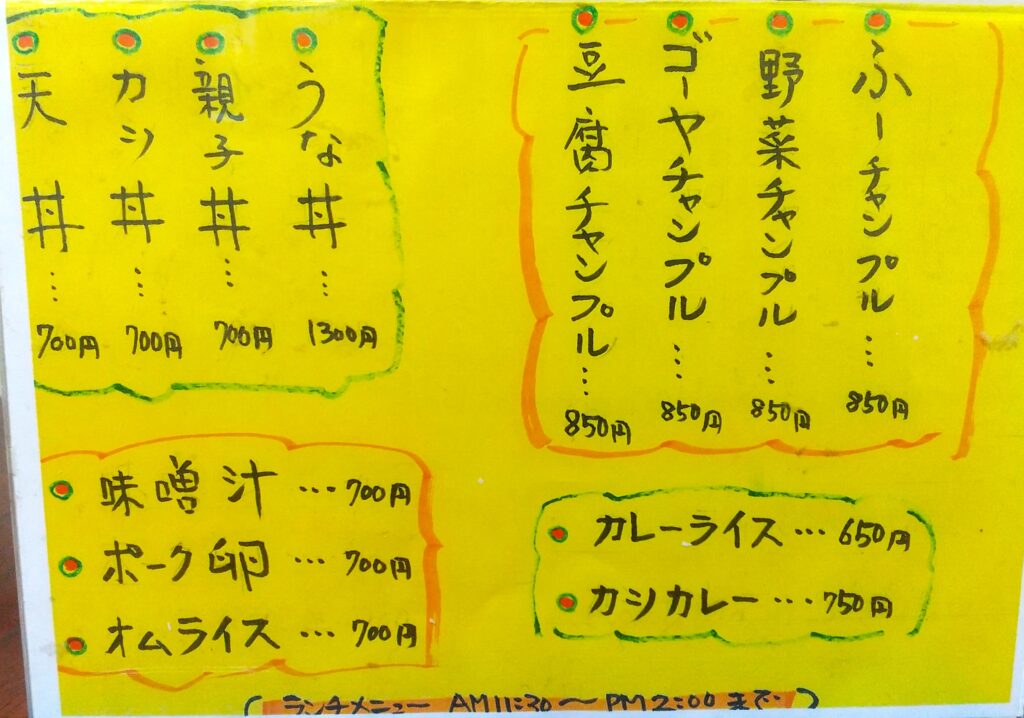 ふーチャンプル…850円
野菜チャンプル…850円
ゴーヤチャンプル…850円
豆腐チャンプル…850円
うな丼…1300円
親子丼…700円
カツ丼…700円
天丼…700円
味噌汁…700円
ポーク卵…700円
オムライス…700円
カレーライス…650円
カツカレー…750円
(ランチメニュー AM11:30〜PM2:00まで)